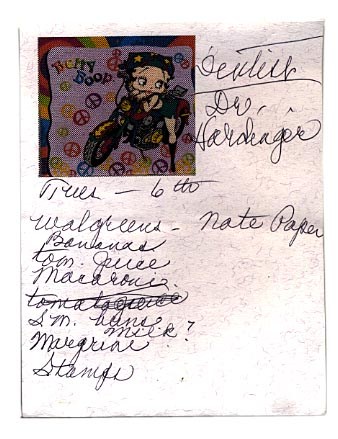 BETTY BOOP
Dentist
Dr.
Hardinger
Tues — 6th
Walgreens - Note Paper
Bananas
tom. juice
Macaroni
tomato juice
Sm. buns
Milk?
Margrine
Stamps